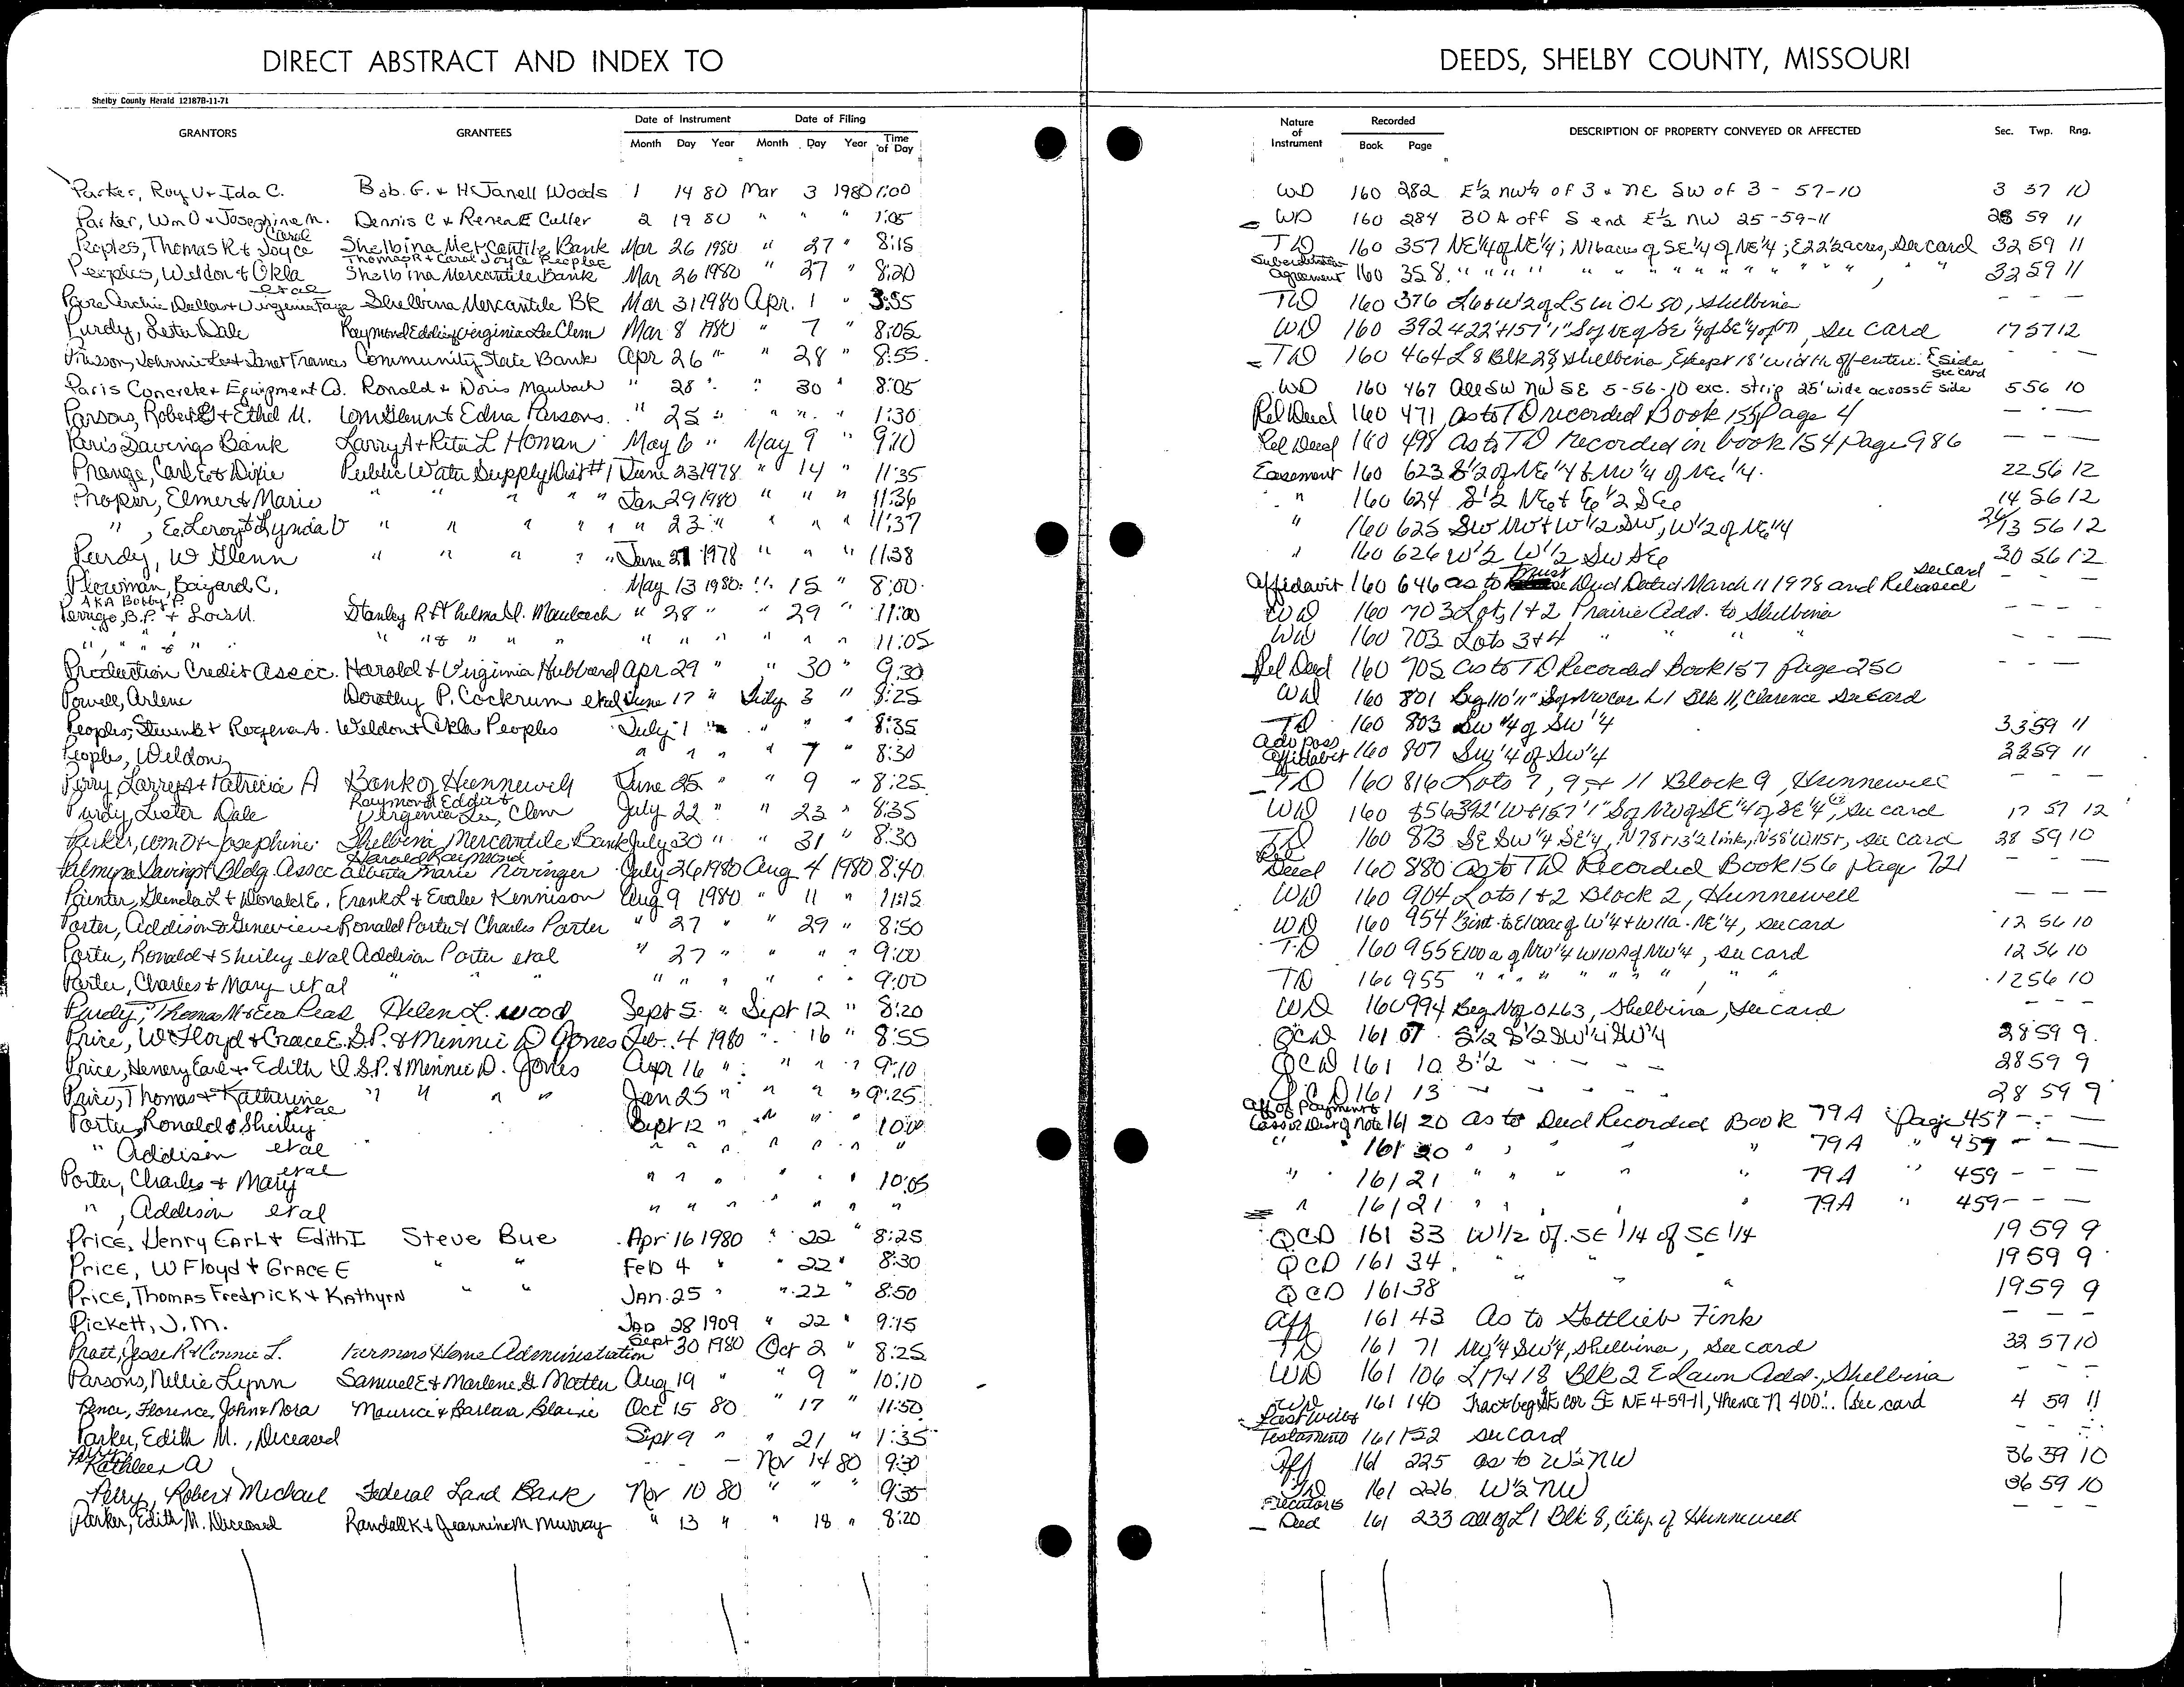 DIRECT ABSTRACT AND INDEX TO
DEEDS, SHELBY COUNTY, MISSOURI
Shelby County Herald 12187B-11-71
GRANTORS GRANTEES Date of Instrument Month Day Year Date of Filing Month Day Year Time of Day Nature of Instrument Recorded Book Page DESCRIPTION OF PROPERTY CONVEYED OR AFFECTED Sec. Twp. Rng.
Parker, Roy V + Ida C. Bob. G. + H Janell Woods 1 14 80 Mar 3 1980 1:00 WD 160 282 E½ NW¼ of 3 + NE SW of 3 - 57-10 3 57 10
Parker, Wm O + Josephine M. Dennis C + Renea E Culler 2 19 80 " " " 1:05 WD 160 284 30 A off S end E½ NW 25-59-11 25 59 11
Peoples, Thomas R + Carol Joyce Shelbina Mercantile Bank Mar 26 1980 " 27 " 8:15 TD 160 357 NE¼ of NE¼; N16acres of SE¼ of NE¼; E22½acres, See card 32 59 11
Peoples, Weldon + Okla etal Thomas R + Carol Joyce Peoples Shelbina Mercantile Bank Mar 26 1980 " 27 " 8:20 Subordination Agreement 160 358 " " " " " " " " " " 32 59 11
Archie Dallas + Virginia Faye Shelbina Mercantile BK Mar 31 1980 Apr. 1 " 3:55 TD 160 376 L6 + W½ of L5 in OL 50, Shelbina - - -
Purdy, Lester Dale Raymond Eddie + Virginia Lee Clem Mar 8 1980 " 7 " 8:05 WD 160 392 See card 17 57 12
Johnnie Lee + Janet Frances Community State Bank Apr 26 " " 28 " 8:55 TD 160 464 L8 Blk 28 Shelbina, Except 18' width off entire E side See card - - -
Paris Concrete + Equipment Co. Ronald + Doris Maubach " 28 " " 30 " 8:05 WD 160 467 All SW NW SE 5-56-10 exc. strip 25' wide across E side 5 56 10
Parsons, Robert G + Ethel M. Wm Glenn + Edna Parsons " 25 " " " " 1:30 Rel Deed 160 471 as to TD recorded Book 155 Page 4 - - -
Paris Savings Bank Larry A + Rita L Homan May 6 " May 9 " 9:10 Rel Deed 160 498 as to TD recorded in book 154 Page 986 - - -
Prange, Carl E + Dixie Public Water Supply Dist #1 June 23 1978 " 14 " 11:35 Easement 160 623 S½ of NE¼ + NW¼ of NE¼ 22 56 12
Proper, Elmer + Marie " " " " Jan 29 1980 " " " 11:36 " 160 624 S½ NE + E½ SE 14 56 12
", E. Leroy + Lynda V " " " " " 23 " " " " 11:37 " 160 625 SW NW + W½ SW, W½ of NE¼ 24/13 56 12
Purdy, W Glenn " " " " June 21 1978 " " " 11:38 " 160 626 W½ W½ SW SE 30 56 12
Plowman, Bayard C. May 13 1980 " 15 " 8:00 Affidavit 160 646 as to Trust Deed Dated March 11 1978 and Released See Card - - -
Perrigo, B.P. AKA Bobby P. + Lois M. Stanley R + Thelma D. Maubach " 28 " " 29 " 11:00 WD 160 703 Lots 1 + 2 Prairie Add. to Shelbina - - -
" " " " " " " " " " " " " " 11:05 WD 160 703 Lots 3 + 4 " " " - - -
Production Credit Assoc. Harold + Virginia Hubbard Apr 29 " " 30 " 9:30 Rel Deed 160 705 as to TD Recorded Book 157 page 250 - - -
Powell, Arlene Dorothy P. Cockrum etal June 17 " July 3 " 8:25 WD 160 801 Beg 110'11" S of NW Cor L1 Blk 11, Clarence See Card
Peoples, Steven K + Rogena A. Weldon + Okla Peoples July 1 " " " " 8:35 TD 160 803 SW¼ of SW¼ 33 59 11
Peoples, Weldon " " " " 7 " 8:30 Adv poss Affidavit 160 807 SW¼ of SW¼ 33 59 11
Perry Larry + Patricia A Bank of Hunnewell June 25 " " 9 " 8:25 TD 160 816 Lots 7, 9, + 11 Block 9, Hunnewell - - -
Purdy, Lester Dale Raymond Eddie + Virginia Lee, Clem July 22 " " 23 " 8:35 WD 160 856 392' W + 157'1" S of NW of SE¼ of SE¼, See card 17 57 12
Parker, Wm O + Josephine Shelbina Mercantile Bank July 30 " " 31 " 8:30 TD 160 873 SE SW¼ SE¼, See card 38 59 10
Palmyra Savings + Bldg. Assoc Harold Raymond Alberta Marie Novinger July 26 1980 Aug 4 1980 8:40 Rel Deed 160 880 as to TD Recorded Book 156 Page 721 - - -
Painter, Glenda L + Donald E. Frank L + Evalee Kennison Aug 9 1980 " 11 " 11:15 WD 160 904 Lots 1 + 2 Block 2, Hunnewell - - -
Porter, Addison + Genevieve Ronald Porter + Charles Porter " 27 " " 29 " 8:50 WD 160 954 See card 12 56 10
Porter, Ronald + Shirley etal Addison Porter etal " 27 " " " " 9:00 TD 160 955 E100 a of NW¼ W110A of NW¼, See card 12 56 10
Porter, Charles + Mary etal " " " " " " " " " 9:00 TD 160 955 " " " " " " " 12 56 10
Purdy, Thomas M + Eva Pearl Helen L. Wood Sept 5 " Sept 12 " 8:20 WD 160 994 Beg of OL63, Shelbina, See card - - -
Price, W Floyd + Grace E. S.P. + Minnie D Jones Feb. 4 1980 " 16 " 8:55 QCD 161 07 S½ S½ SW¼ SW¼ 28 59 9
Price, Henery Earl + Edith I. S.P. + Minnie D. Jones Apr 16 " " " " 9:10 QCD 161 10 S½ - - - - 28 59 9
Price, Thomas + Katherine " " " " Jan 25 " " " " 9:25 QCD 161 13 - - - - 28 59 9
Porter, Ronald + Shirley etal Sept 12 " " " " 10:00 Aff of Payment + Loss or Dest of Note 161 20 as to Deed Recorded Book 79A Page 457 - - -
" Addison etal " " " " " " " " " 161 20 " " " " 79A " 459 - - -
Porter, Charles + Mary etal " " " " " " 10:05 " " 161 21 " " " " 79A " 459 - - -
", Addison etal " " " " " " " " 161 21 " " " " 79A " 459 - - -
Price, Henry EARL + Edith I Steve Bue Apr 16 1980 " 22 " 8:25 QCD 161 33 W1/2 of SE 1/4 of SE 1/4 19 59 9
Price, W Floyd + GRACE E " " Feb 4 " " 22 " 8:30 QCD 161 34 " " " 19 59 9
Price, Thomas Fredrick + Kathyrn " " JAN. 25 " " 22 " 8:50 QCD 161 38 " " " 19 59 9
Pickett, J.M. Jan 28 1909 " 22 " 9:15 Aff 161 43 As to Gottlieb Fink - - -
Pratt, Jesse R + Connie L. Farmers Home Administration Sept 30 1980 Oct 2 " 8:25 TD 161 71 NW¼ SW¼, Shelbina, See card 32 57 10
Parsons, Nellie Lynn Samuel E + Marlene G Matter Aug 19 " " 9 " 10:10 WD 161 106 L17 + 18 Blk 2 E Lawn Add., Shelbina - - -
Pence, Florence, John + Nora Maurice + Barbara Blaine Oct 15 80 " 17 " 11:50 WD 161 140 Tract beg SE cor SE NE 4-59-11, thence N 400'... (See card 4 59 11
Parker, Edith M., Deceased Sept 9 " " 21 " 1:35 Last Will + Testament 161 152 See card - - -
Perry, Kathleen A - - - Nov 14 80 9:30 Aff 161 225 as to W½ NW 36 59 10
Perry, Robert Michael Federal Land Bank Nov 10 80 " " " 9:35 TD 161 226 W½ NW 36 59 10
Parker, Edith M. Deceased Randall K + Jeannine M Murray " 13 " " 18 " 8:20 Executors Deed 161 233 all of L1 Blk 8, City of Hunnewell - - -